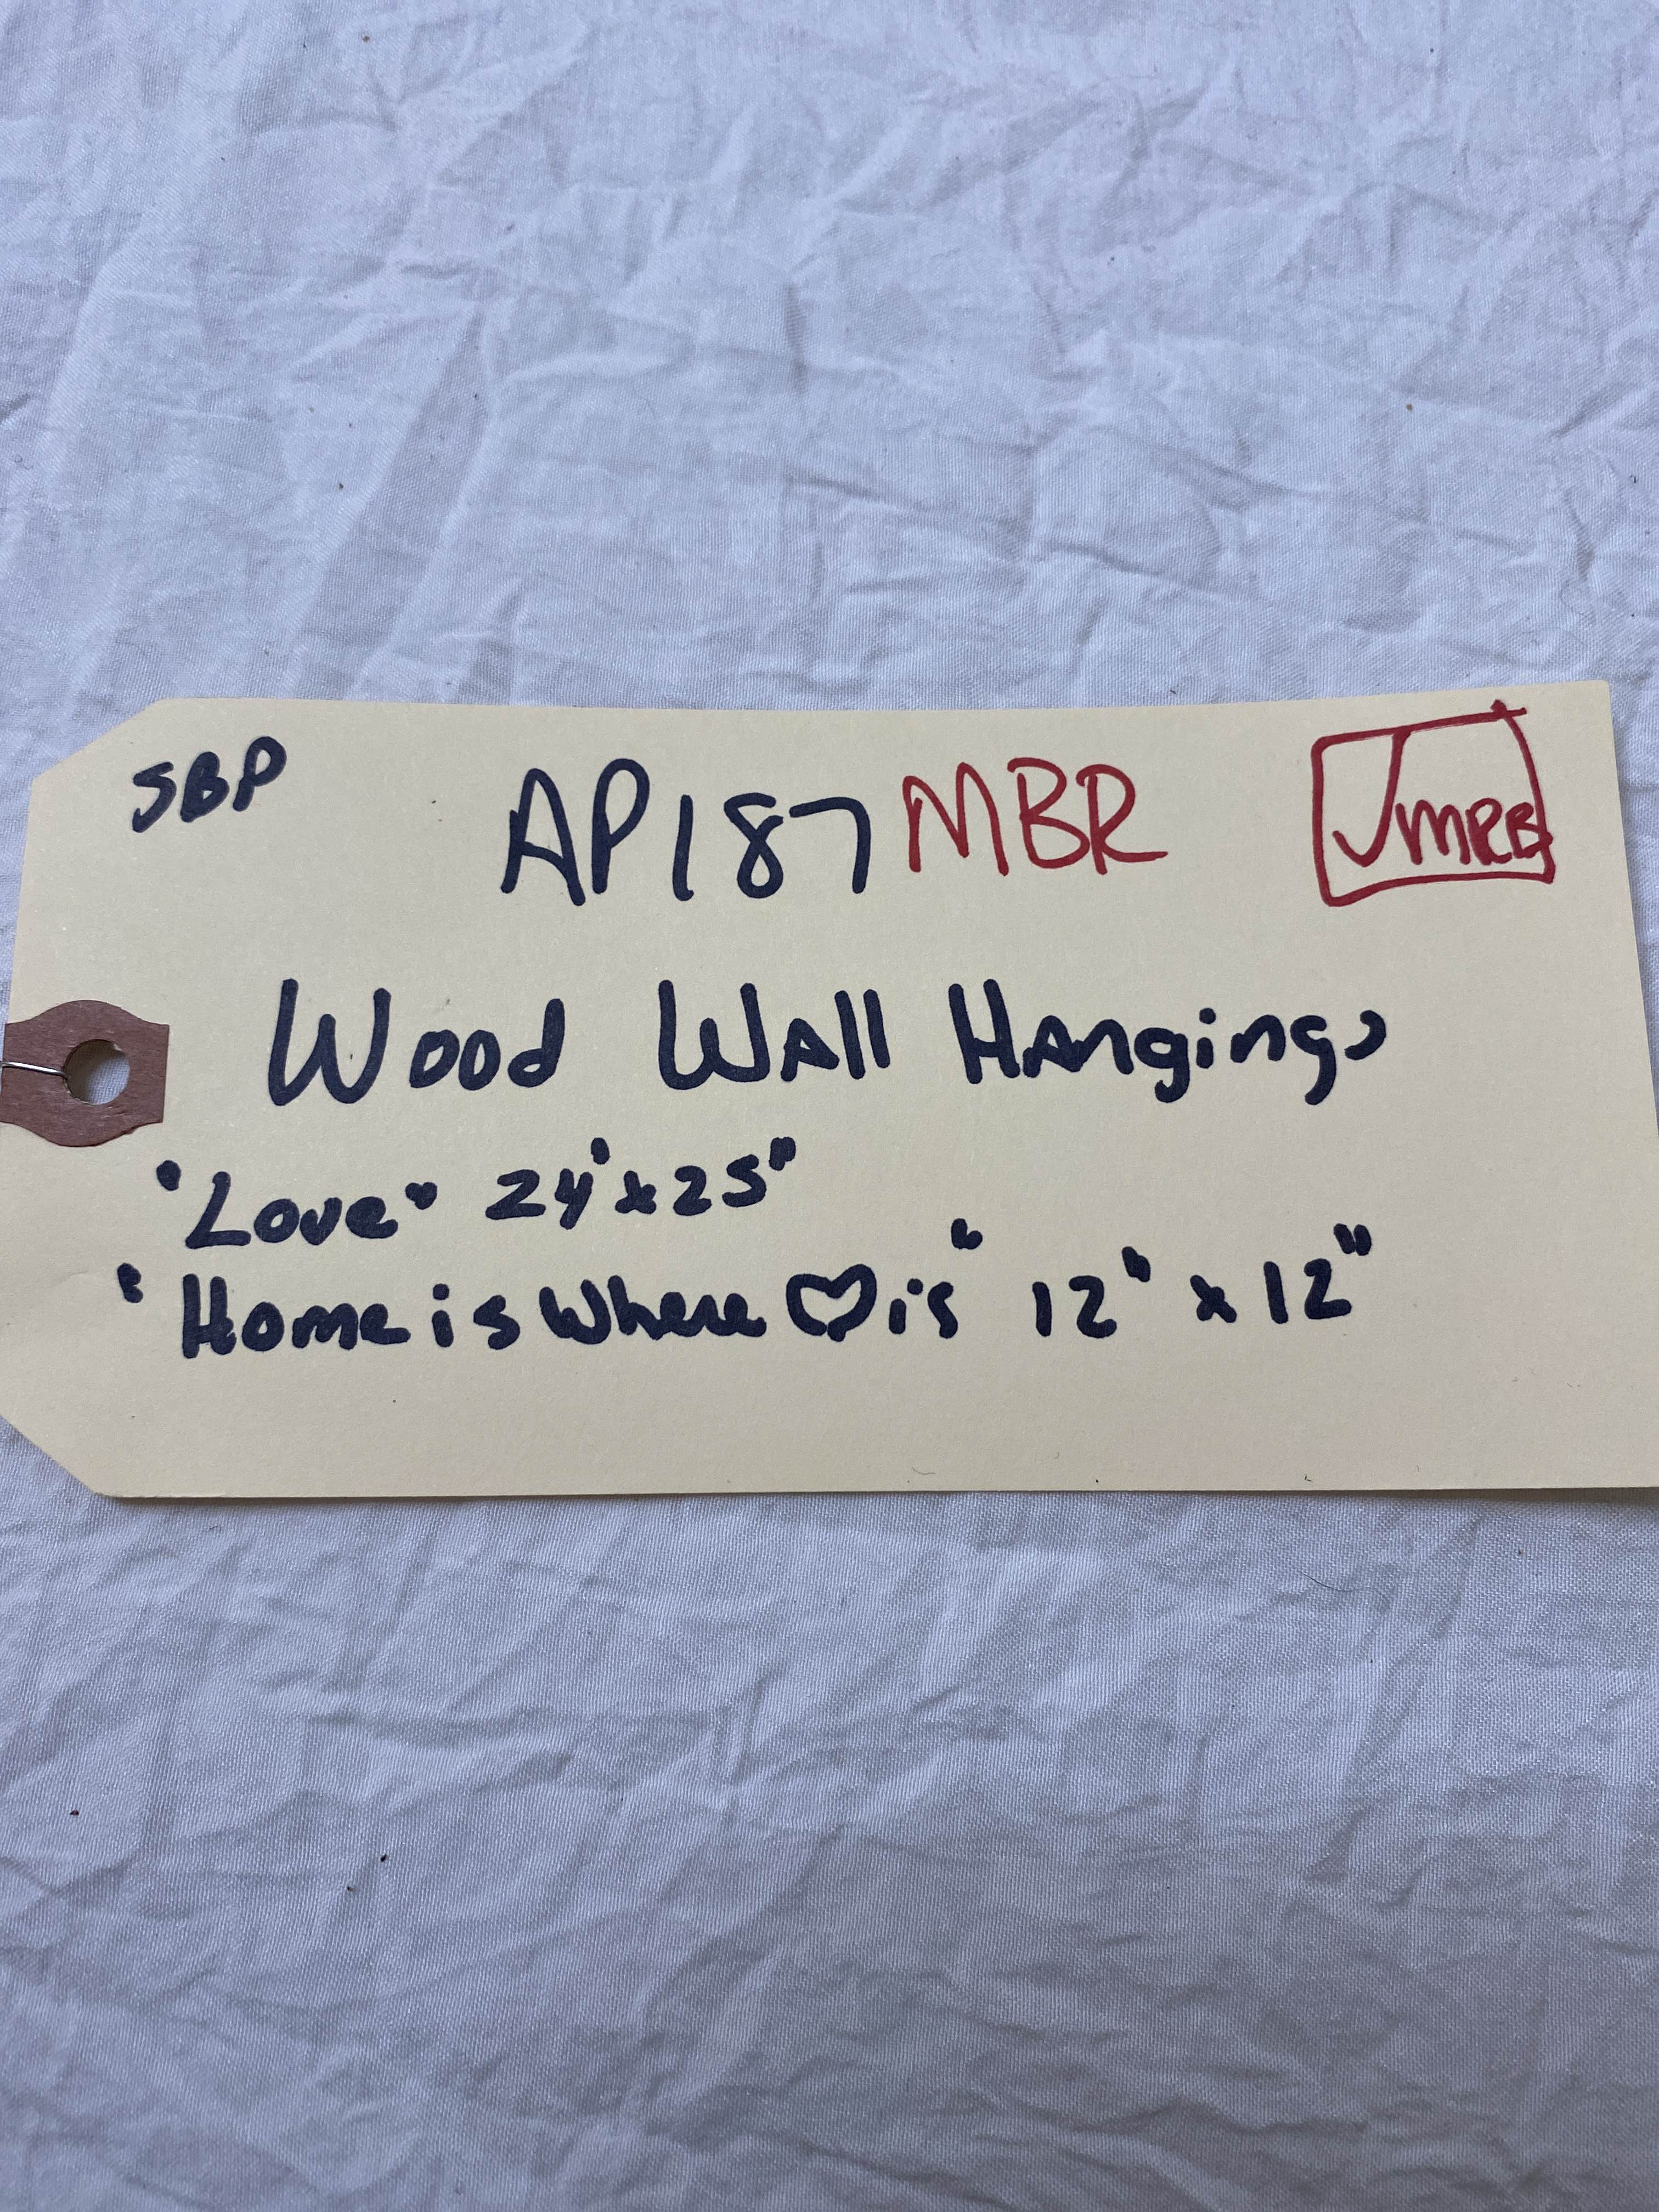 SBP AP187 MBR JMRB
Wood Wall Hangings
"Love" 24"x25"
"Home is Where ♡ is" 12" x 12"